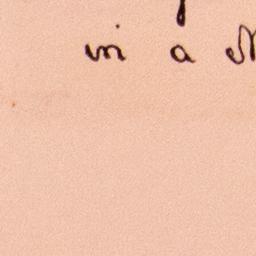 in a